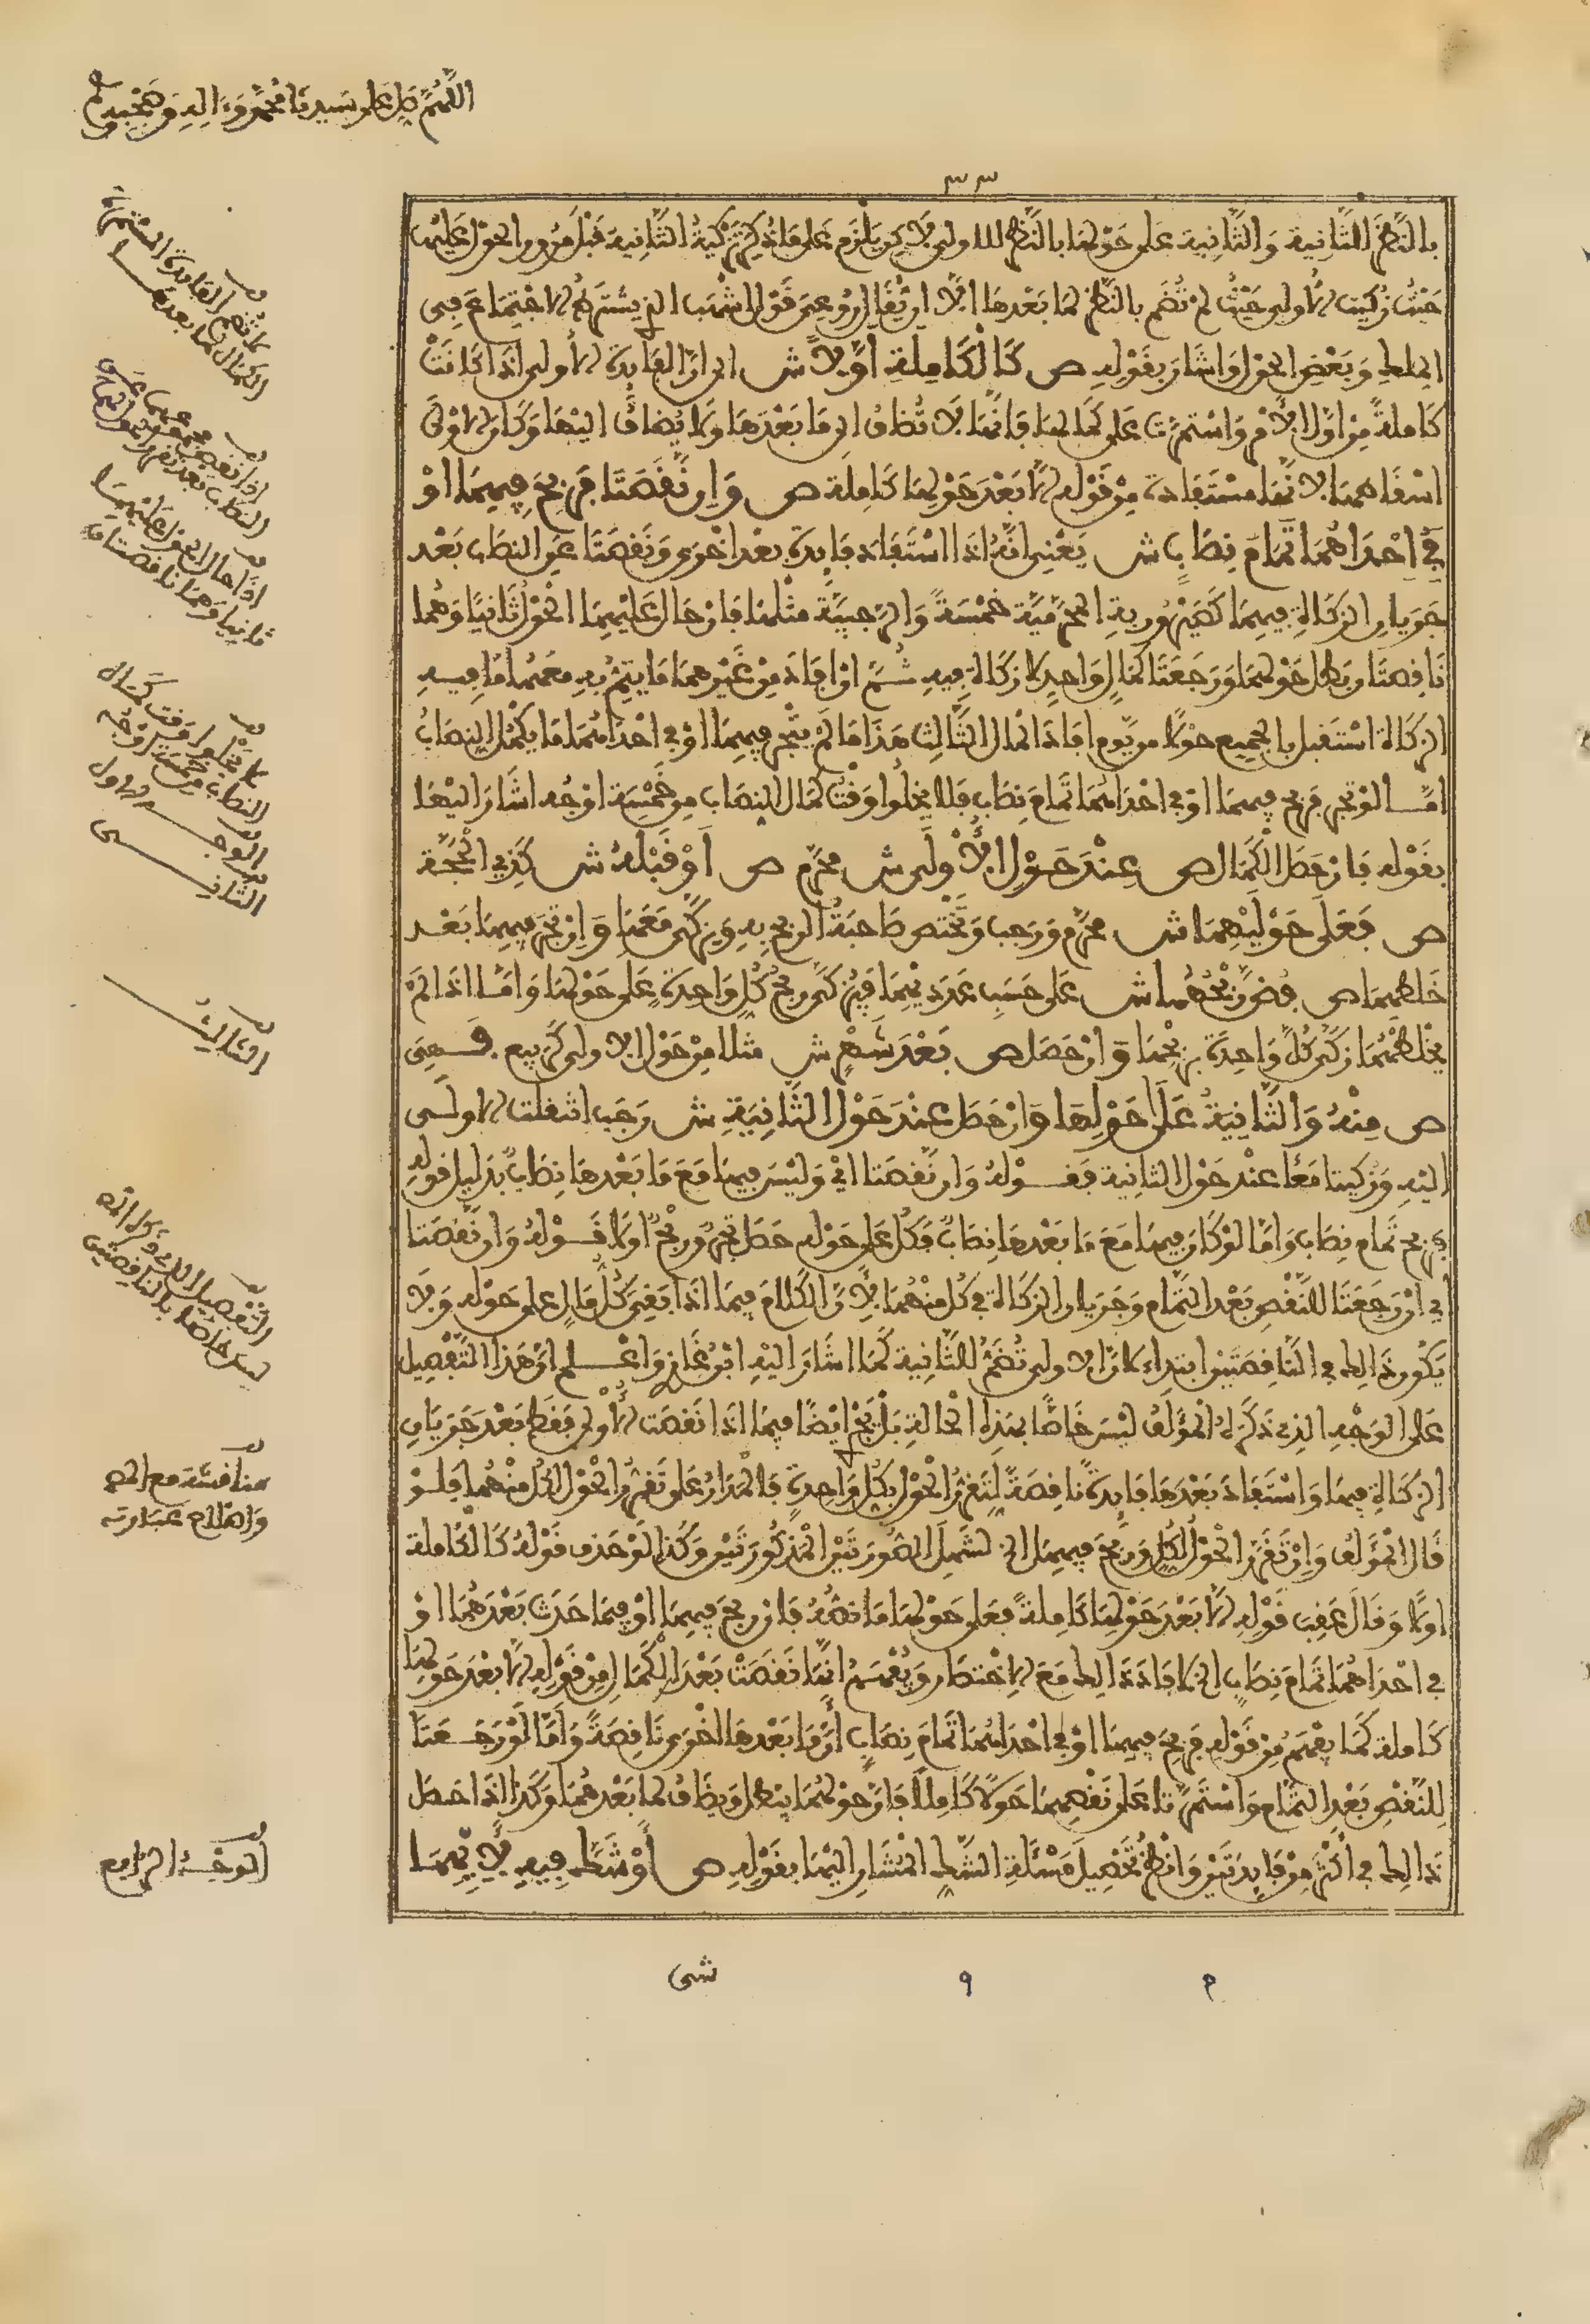 اللهم صل على سيدنا محمد وءاله وصحبه وسلم
٣٣
بالنظر للثانية والثانية على حولها بالنظر للاولى لاكن يلزم على ما ذكر تزكية الثانية قبل مرور الحول عليها
حيث زكيت الأولى حيث لم تضم بالنظر لما بعدها الا ان يقال روعي قول اشهب الذي يشترط الاجتماع في
الملك وبعض الحول واشار بقوله ص كالكاملة أولا ش اي ان الفايدة الأولى اذا كانت
كاملة من اول الأمر واستمرت على كمالها فانها لا تضاف الى ما بعدها ولا يضاف اليها وكان الاولى
اسقاطها لانها مستفادة من قوله الا بعد حولها كاملة ص وان نقصتا فربح فيهما او
في احداهما تمام نصاب ش يعني انه اذا استفاد فايدة بعد اخرى ونقصتا عن النصاب بعد
جريان الزكاة فيهما كصيرورية المحرمية خمسة والرجبية مثلها فان حال عليهما الحول ثانيا وهما
ناقصتان بطل حولهما ورجعتا كمال واحد لا زكاة فيه ثم ان افاد من غيرهما ما يتم به معهما ما فيه
الزكاة استقبل بالجميع حولا من يوم افاد المال الثالث هذا ما لم يتجر فيهما او في احداهما ما يكمل النصاب
امــا لو تجر فربح فيهما او في احداهما تمام نصاب فلا يخلوا وقت كمال النصاب من خمسة اوجه اشار اليها
بقوله فان حصل الكمال ص عند حول الأولى ش محرم ص أو قبله ش كذي الحجة
ص فعلى حوليهما ش محرم ورجب وتختص صاحبة الربح به ويزكى معها وان تجر فيهما بعد
خلطهما ص فض ربحهما ش على حسب عددهما فيزكى ربح كل واحدة على حولها واما اذا لم
يخلطهما زكى كل واحدة بربحها وان حصل ص بعد شهر ش مثلا من حول الاولى كربيع فـمعنى
ص منه والثانية على حولها وان حصل عند حول الثانية ش رجب انتقلت الاولـى
اليه وزكيتا معا عند حول الثانية فقـــوله وان نقصتا اي وليس فيها مع ما بعدها نصاب بدليل قوله
فربح تمام نصاب واما لو كان فيها مع ما بعدها نصاب فكل على حوله حصل تجر وربح اولا فــقوله وان نقصتا
اي ان رجعتا للنقص بعد التمام وجريان الزكاة في كل منهما لان الكلام فيما اذا بقي كل مال على حوله ولا
يكون ذالك في الناقصتين ابتداء لان الاولى تضم للثانية كما اشار اليه ابن غازي واعــلم ان هذا التفصيل
على الوجه الذي ذكره المؤلف ليس خاصا بهذه الحالة بل يجري ايضا فيما اذا نقصت الأولى فقط بعد جريان
الزكاة فيها واستفاد بعدها فايدة ناقصة لتقرر الحول بكل واحدة فالمدار على تقرر الحول لكل منهما فلـو
قال المؤلف وان تقرر الحول لكل وربح فيهما الخ لشمل الصورتين المذكورتين وكذا لو حذف قوله كالكاملة
اولا وقال عقب قوله الا بعد حولها كاملة فعلى حولها ما نصه فان ربح فيهما او فيما حدث بعدهما او
في احداهما تمام نصاب الخ لافاد ذالك مع الاختصار ويفهم انها نقصت بعد الكمال من قوله الا بعد حولها
كاملة كما يفهم من قوله فربح فيهما او في احداهما تمام نصاب ان ما بعدها اخرى ناقصة واما لو رجـعتا
للنقص بعد التمام واستمرتا على نقصهما حولا كاملا فان حولهما يبطل ويضاف لما بعدهما وكذا اذا حصل
ذالك في اكثر من فايدتين وانظر تحصيل مسئلة الشك المشار اليها بقوله ص أو شك فيه لأيهما
قف
لا تضم الفايدة المستمرة
الكمال لما بعدها
قف
قف
اذا حال الحول عليهما
ثانيا وهما ناقصتان
قف
لا يخلوا وقت كمال
النصاب من خمسة اوجه
قف
الوجه الاول
قف
الثاني
قف
الثالث
قف
التفصيل الذي ذكر انه
ليس خاصا بالناقصتين
قف
مناقشته مع المص
واصلاح عبارته
قف
الوجه الرابع
م
و
شى